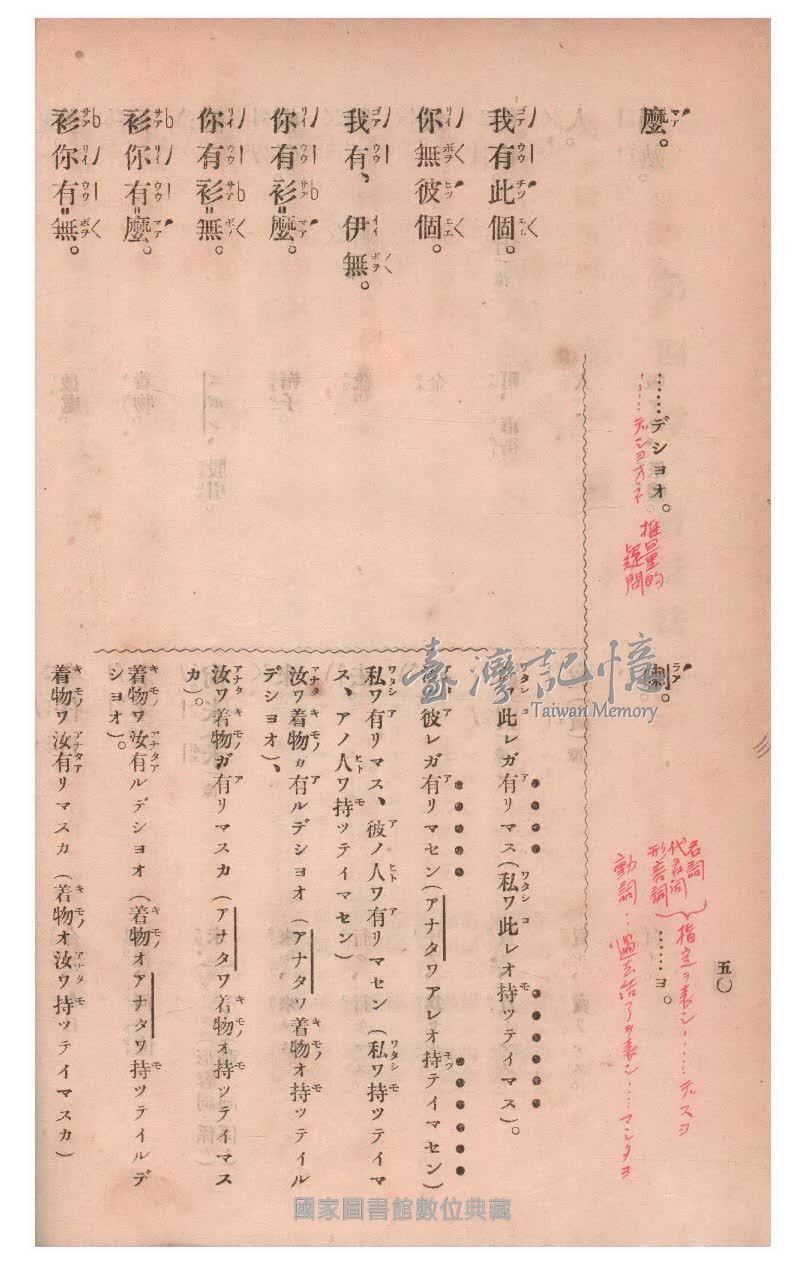 五〇
麼。
……デショオ。
……デショオネ
推量的
疑問
……ヨ。
名詞
代名詞
形容詞
指定ヲ表シ……デスヨ
動詞……過去
我有此個。
私ワ此レガ有リマス(私ワ此レオ持ッテイマス)。
你無彼個。
彼レガ有リマセン(アナタワアレオ持テイマセン)
我有、伊無。
私ワ有リマス、彼ノ人ワ有リマセン (私ワ持ッテイマ
ス、アノ人ワ持ッテイマセン)
你有衫麼。
汝ワ着物ガ有ルデショオ (アナタワ着物オ持ッテイル
デショオ)、
你有衫無。
汝ワ着物ガ有リマスカ (アナタワ着物オ持ッテイマス
カ)。
衫你有麼。
着物ワ汝有ルデショオ (着物オアナタワ持ッテイルデ
ショオ)。
衫你有無。
着物ワ汝有リマスカ (着物オ汝ワ持ッテイマスカ)
臺灣記憶
Taiwan Memory
國家圖書館數位典藏